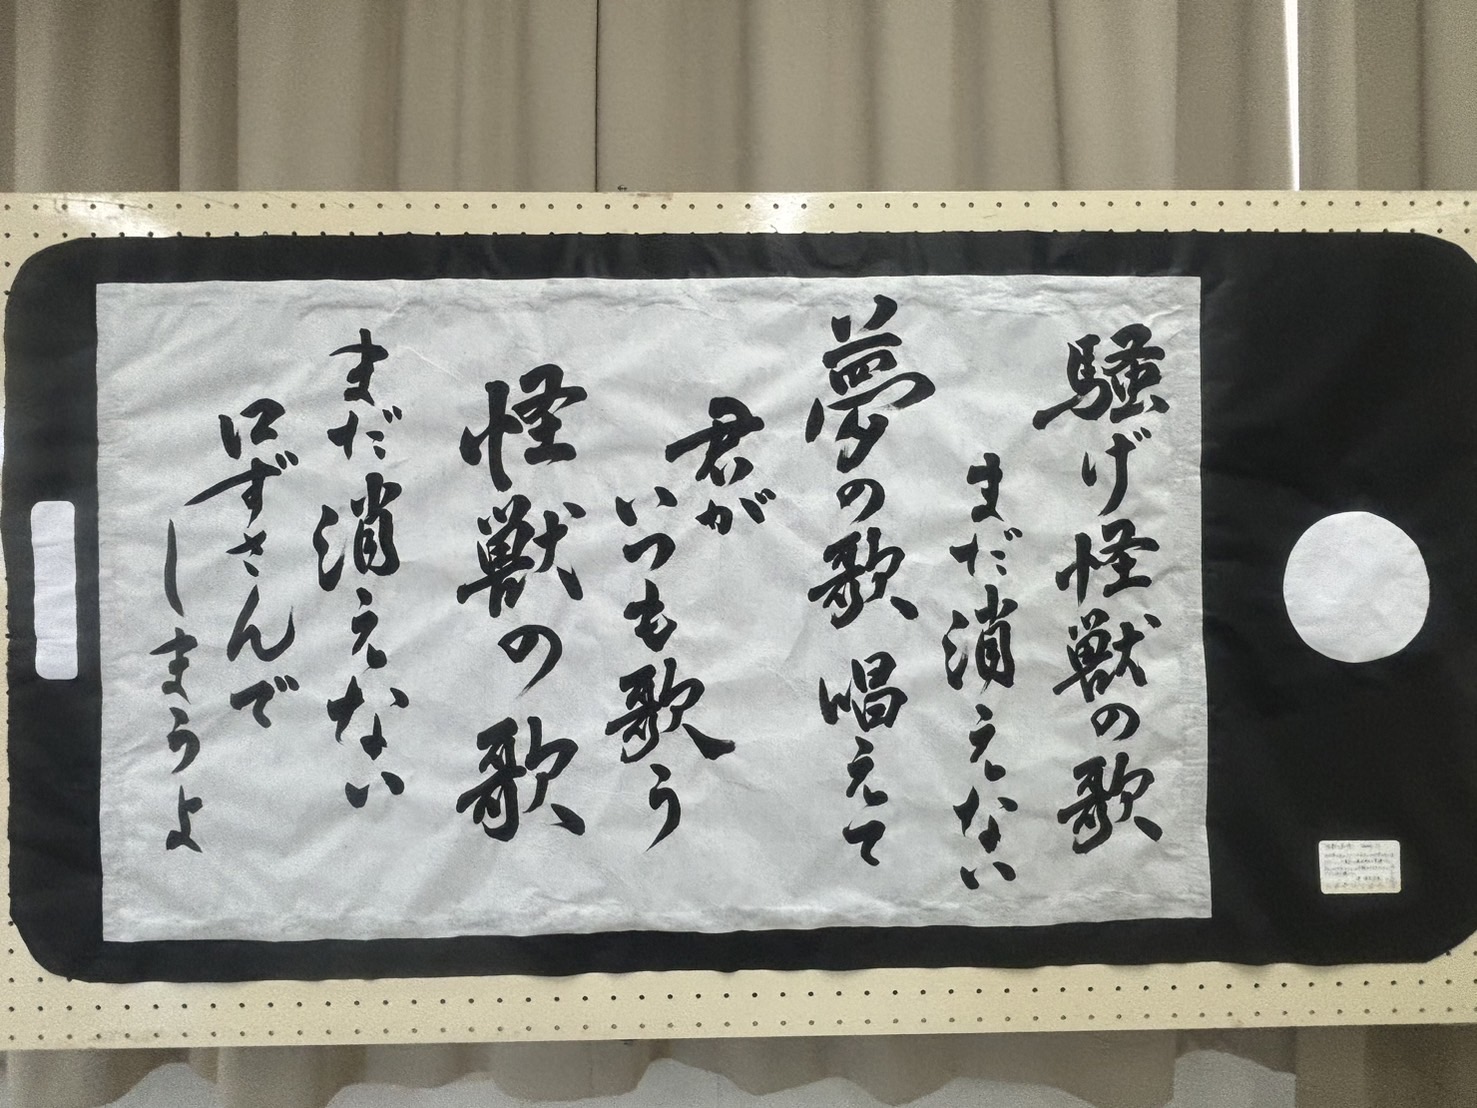 騒げ怪獣の歌
まだ消えない
夢の歌唱えて
君が
いつも歌う
怪獣の歌
まだ消えない
口ずさんで
しまうよ